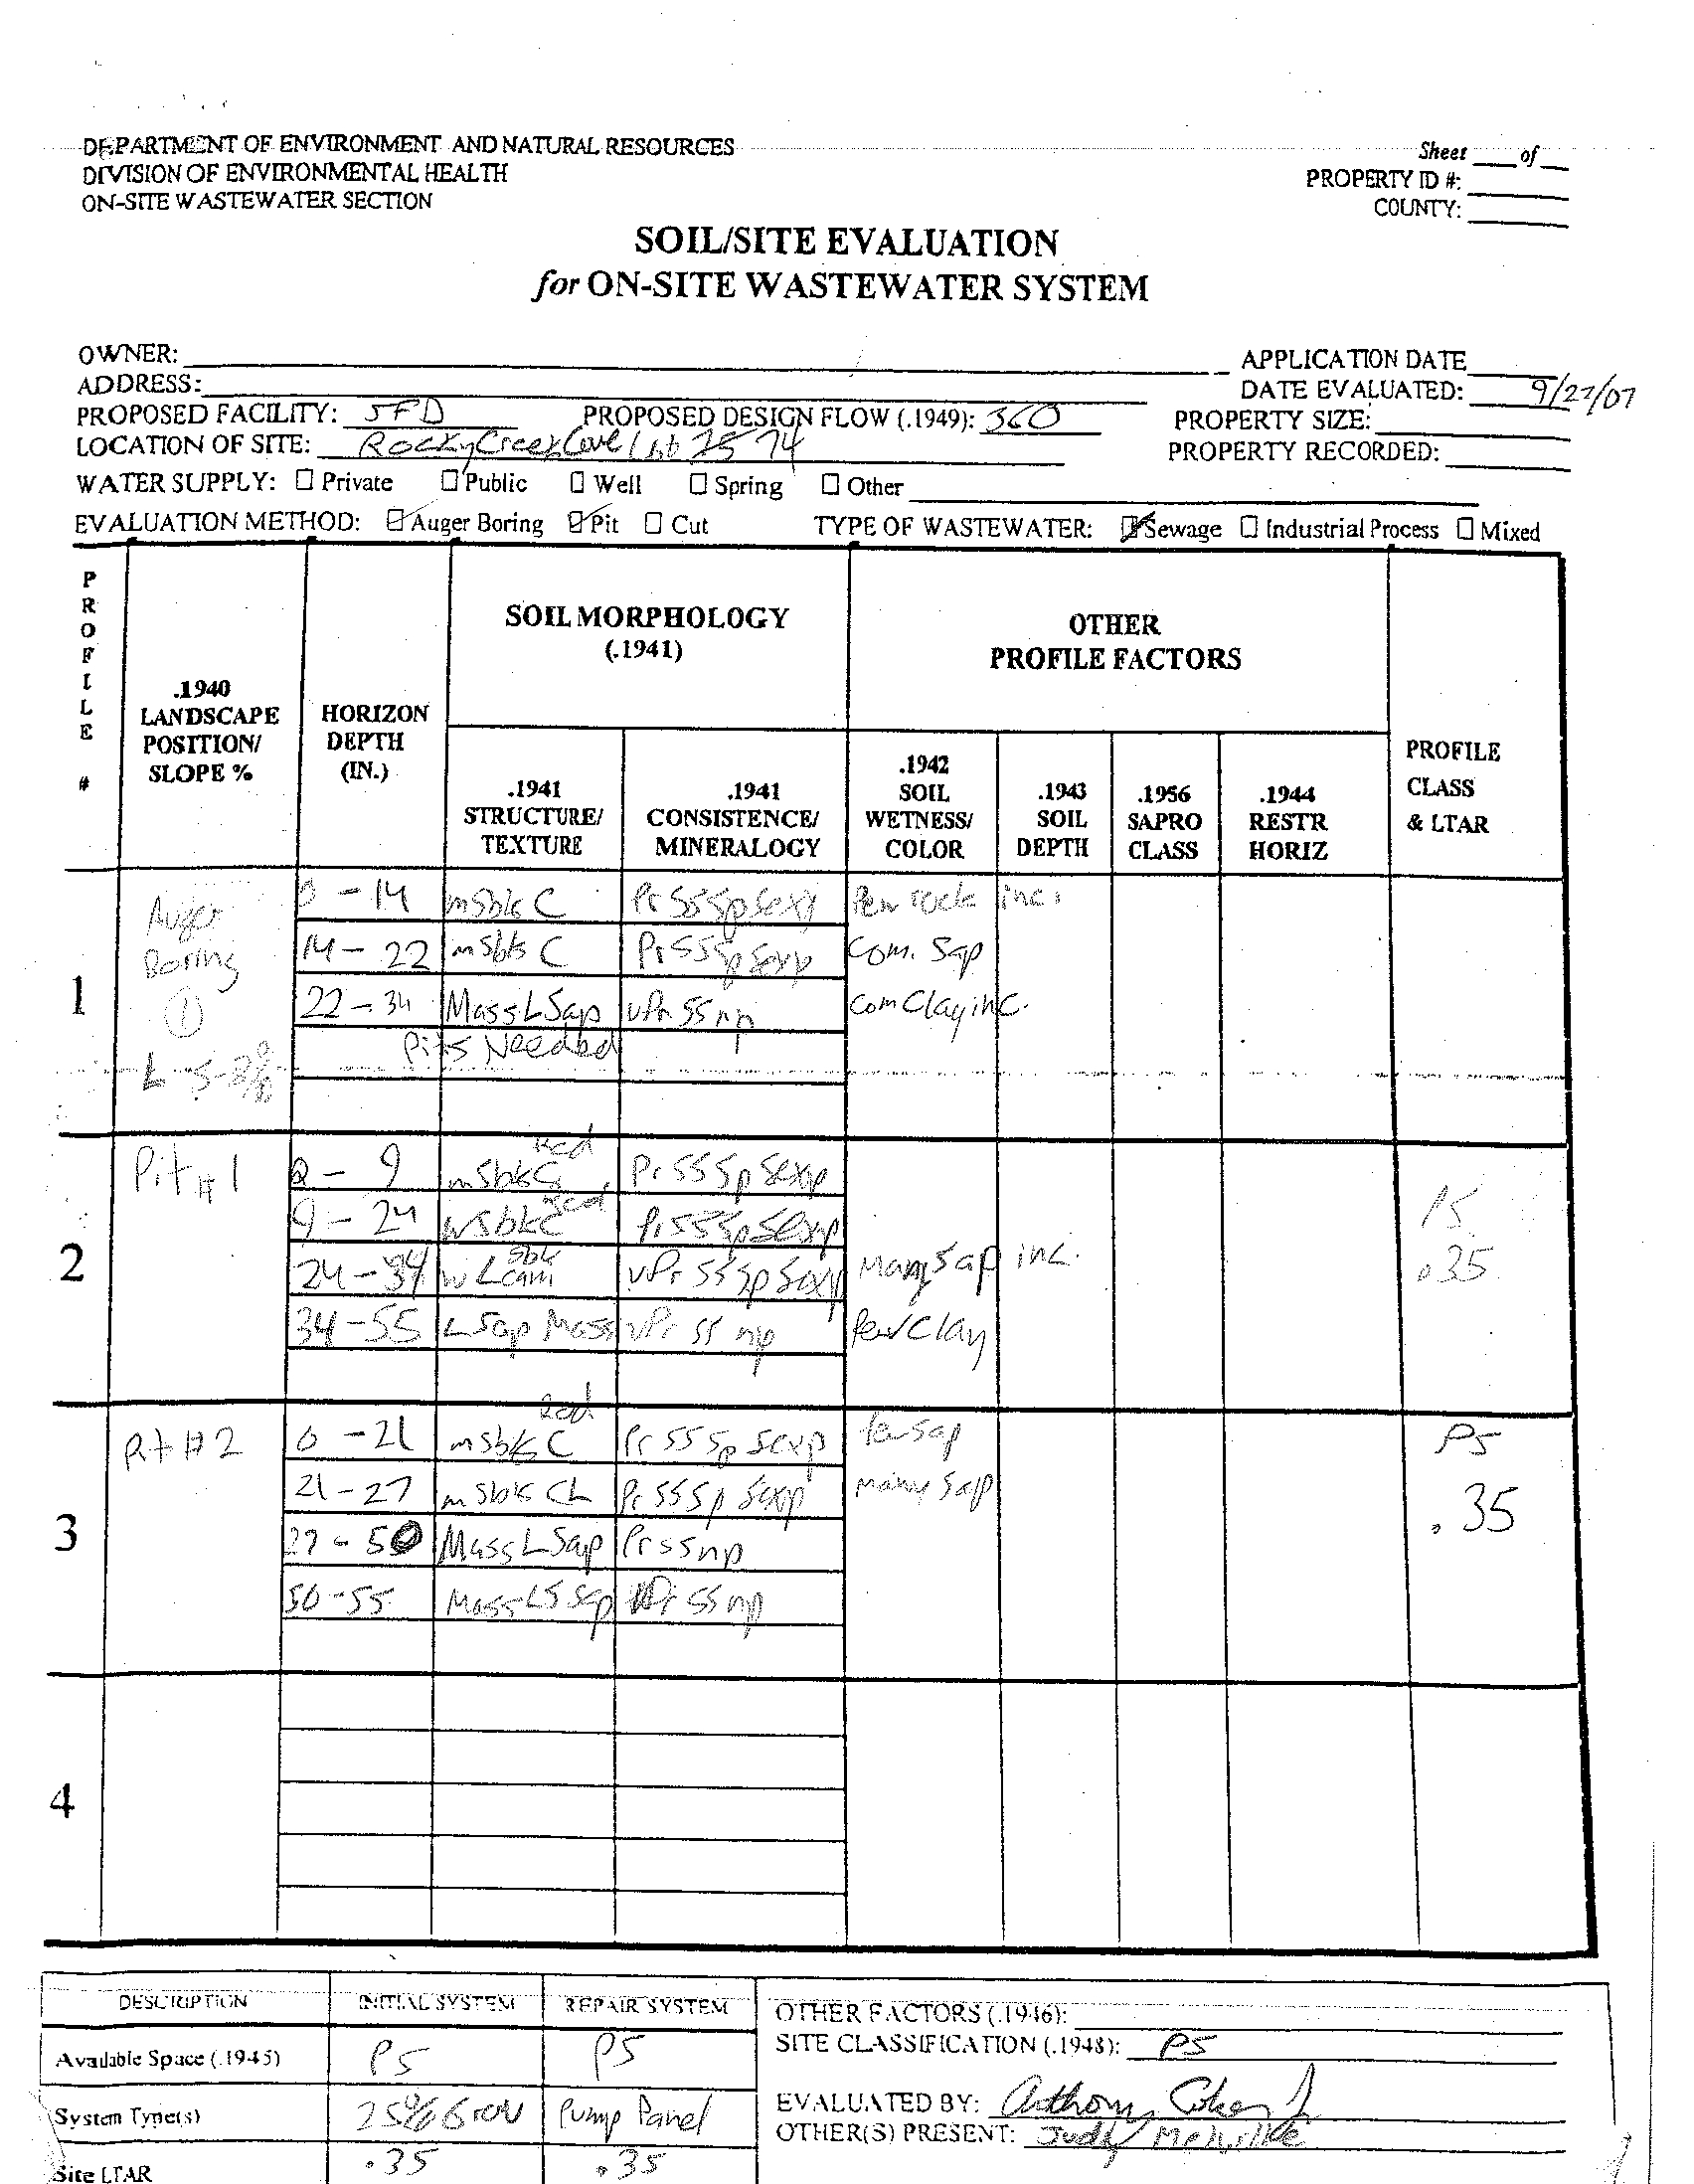 DEPARTMENT OF ENVIRONMENT AND NATURAL RESOURCES
DIVISION OF ENVIRONMENTAL HEALTH
ON-SITE WASTEWATER SECTION
Sheet ___ of ___
PROPERTY ID #:
COUNTY:
SOIL/SITE EVALUATION
for ON-SITE WASTEWATER SYSTEM
OWNER:
APPLICATION DATE
ADDRESS:
DATE EVALUATED: 9/27/07
PROPOSED FACILITY: SFD PROPOSED DESIGN FLOW (.1949): 360 PROPERTY SIZE:
LOCATION OF SITE: Rocky Creek Cove Lot 74
PROPERTY RECORDED:
WATER SUPPLY: ☐ Private ☐ Public ☐ Well ☐ Spring ☐ Other
EVALUATION METHOD: ☑ Auger Boring ☑ Pit ☐ Cut TYPE OF WASTEWATER: ☑ Sewage ☐ Industrial Process ☐ Mixed
PROFILE #
.1940 LANDSCAPE POSITION/ SLOPE %
HORIZON DEPTH (IN.)
SOIL MORPHOLOGY (.1941)
.1941 STRUCTURE/ TEXTURE
.1941 CONSISTENCE/ MINERALOGY
OTHER PROFILE FACTORS
.1942 SOIL WETNESS/ COLOR
.1943 SOIL DEPTH
.1956 SAPRO CLASS
.1944 RESTR HORIZ
PROFILE CLASS & LTAR
1
Auger Boring ①
L 5-8%
0 - 14 msbk C Pr SS Sp Sexp Few rock inc.
14 - 22 msbk C Pr SS Sp Sexp Com. Sap
22 - 34 Mass L Sap vPr SS np Com Clay inc.
Pits Needed
2
Pit #1
0 - 9 msbk C Red Pr SS Sp Sexp
9 - 24 wsbk C Red Pr SS Sp Sexp
24 - 34 w sbk Loam vPr SS Sp Sexp Many Sap inc.
34 - 55 L Sap Mass vPr SS np Few Clay
PS
.35
3
Pit #2
0 - 21 msbk C Red Pr SS Sp Sexp Few Sap
21 - 27 msbk CL Pr SS Sp Sexp Many Sap
27 - 50 Mass L Sap Pr SS np
50 - 55 Mass LS Sap vPr SS np
PS
.35
4
DESCRIPTION INITIAL SYSTEM REPAIR SYSTEM
Available Space (.1945) PS PS
System Type(s) 25% Pump Panel
Site LTAR .35 .35
OTHER FACTORS (.1946):
SITE CLASSIFICATION (.1948): PS
EVALUATED BY: Anthony
OTHER(S) PRESENT: Judy